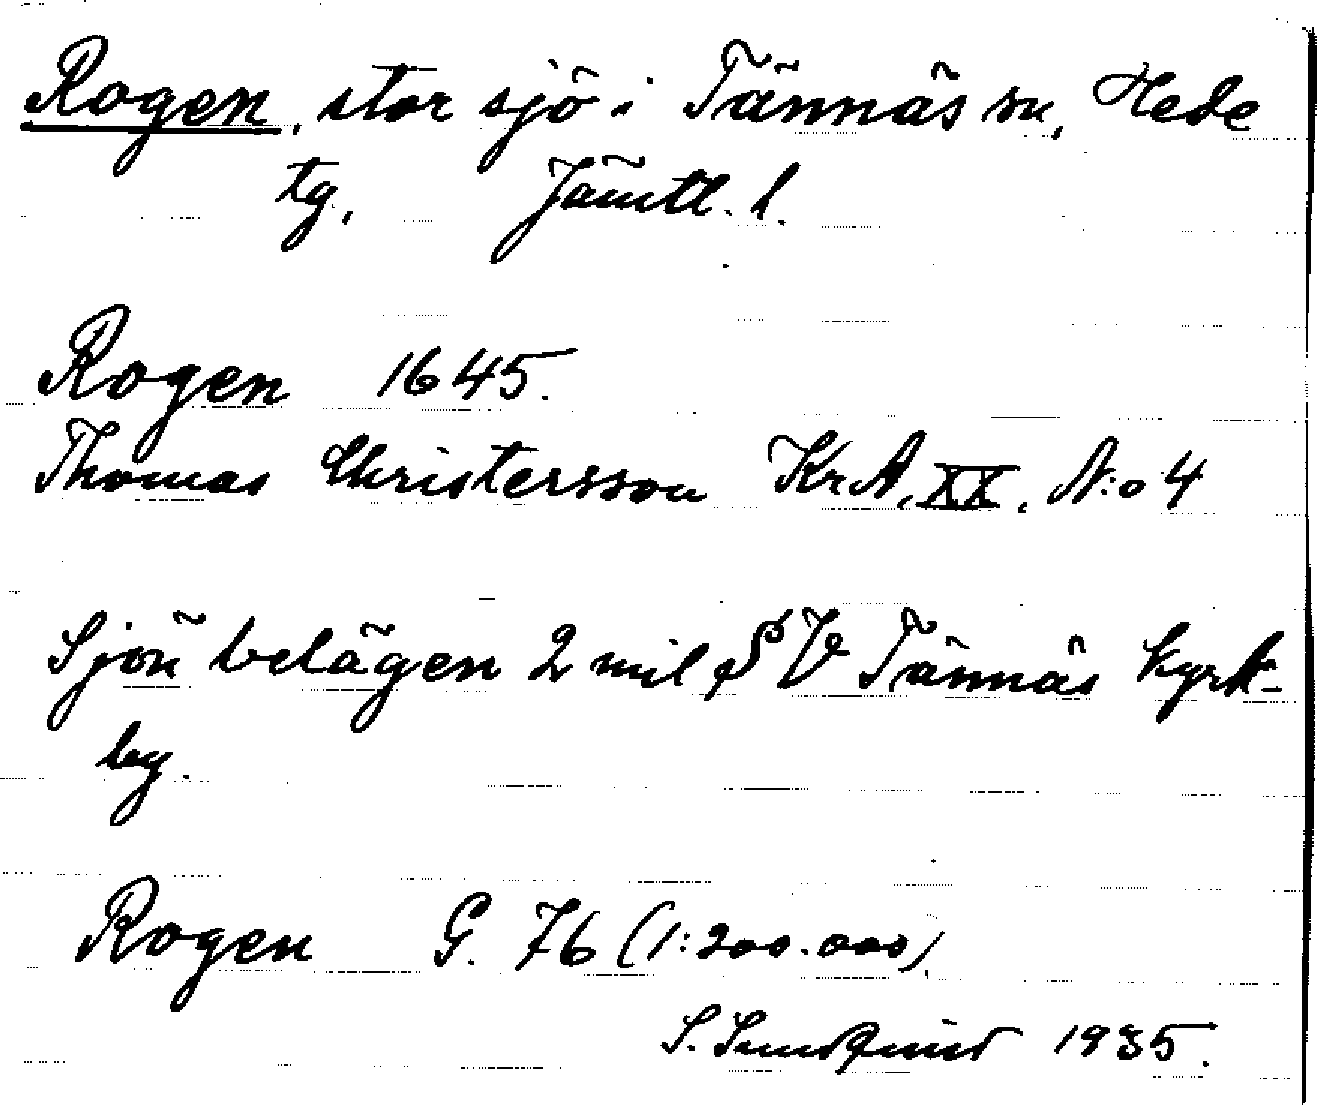 Rogen, stor sjö i Tännäs sn, Hede
tg, Jämtl. l.
Rogen 1645.
Thomas Christersson KrA, XX, N:o 4
Sjön belägen 2 mil S V Tännäs kyrk-
by.
Rogen G. 76 (1:200.000)
S. Sundqvist 1935.